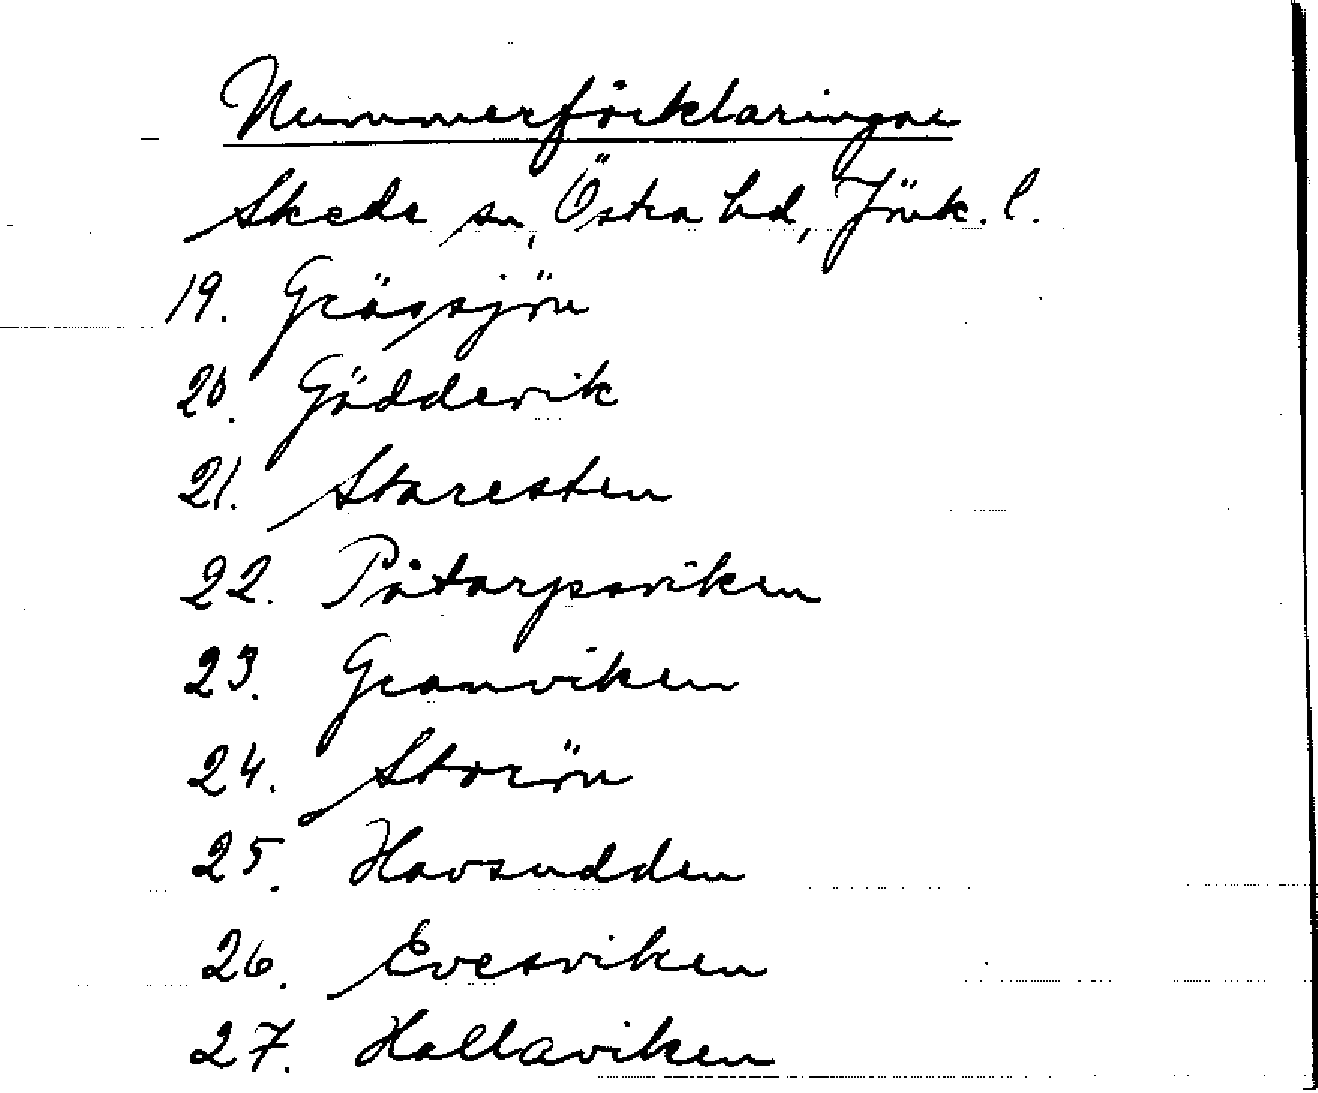 Nummerförklaringar
Skede sn, Östra hd, Jönk. l.
19. Grässjön
20. Gäddevik
21. Staresten
22. Påtorpsviken
23. Granviken
24. Storön
25. Havsudden
26. Evesviken
27. Hallaviken